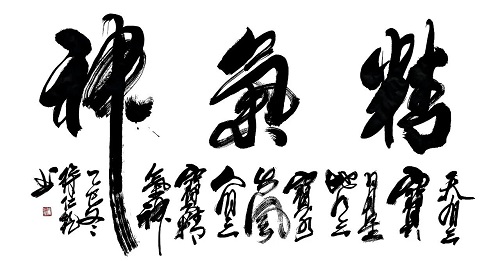 精氣神
天有三
寶日
月星
地有三
寶水
火風
人有三
寶精
氣神
乙巳冬
书